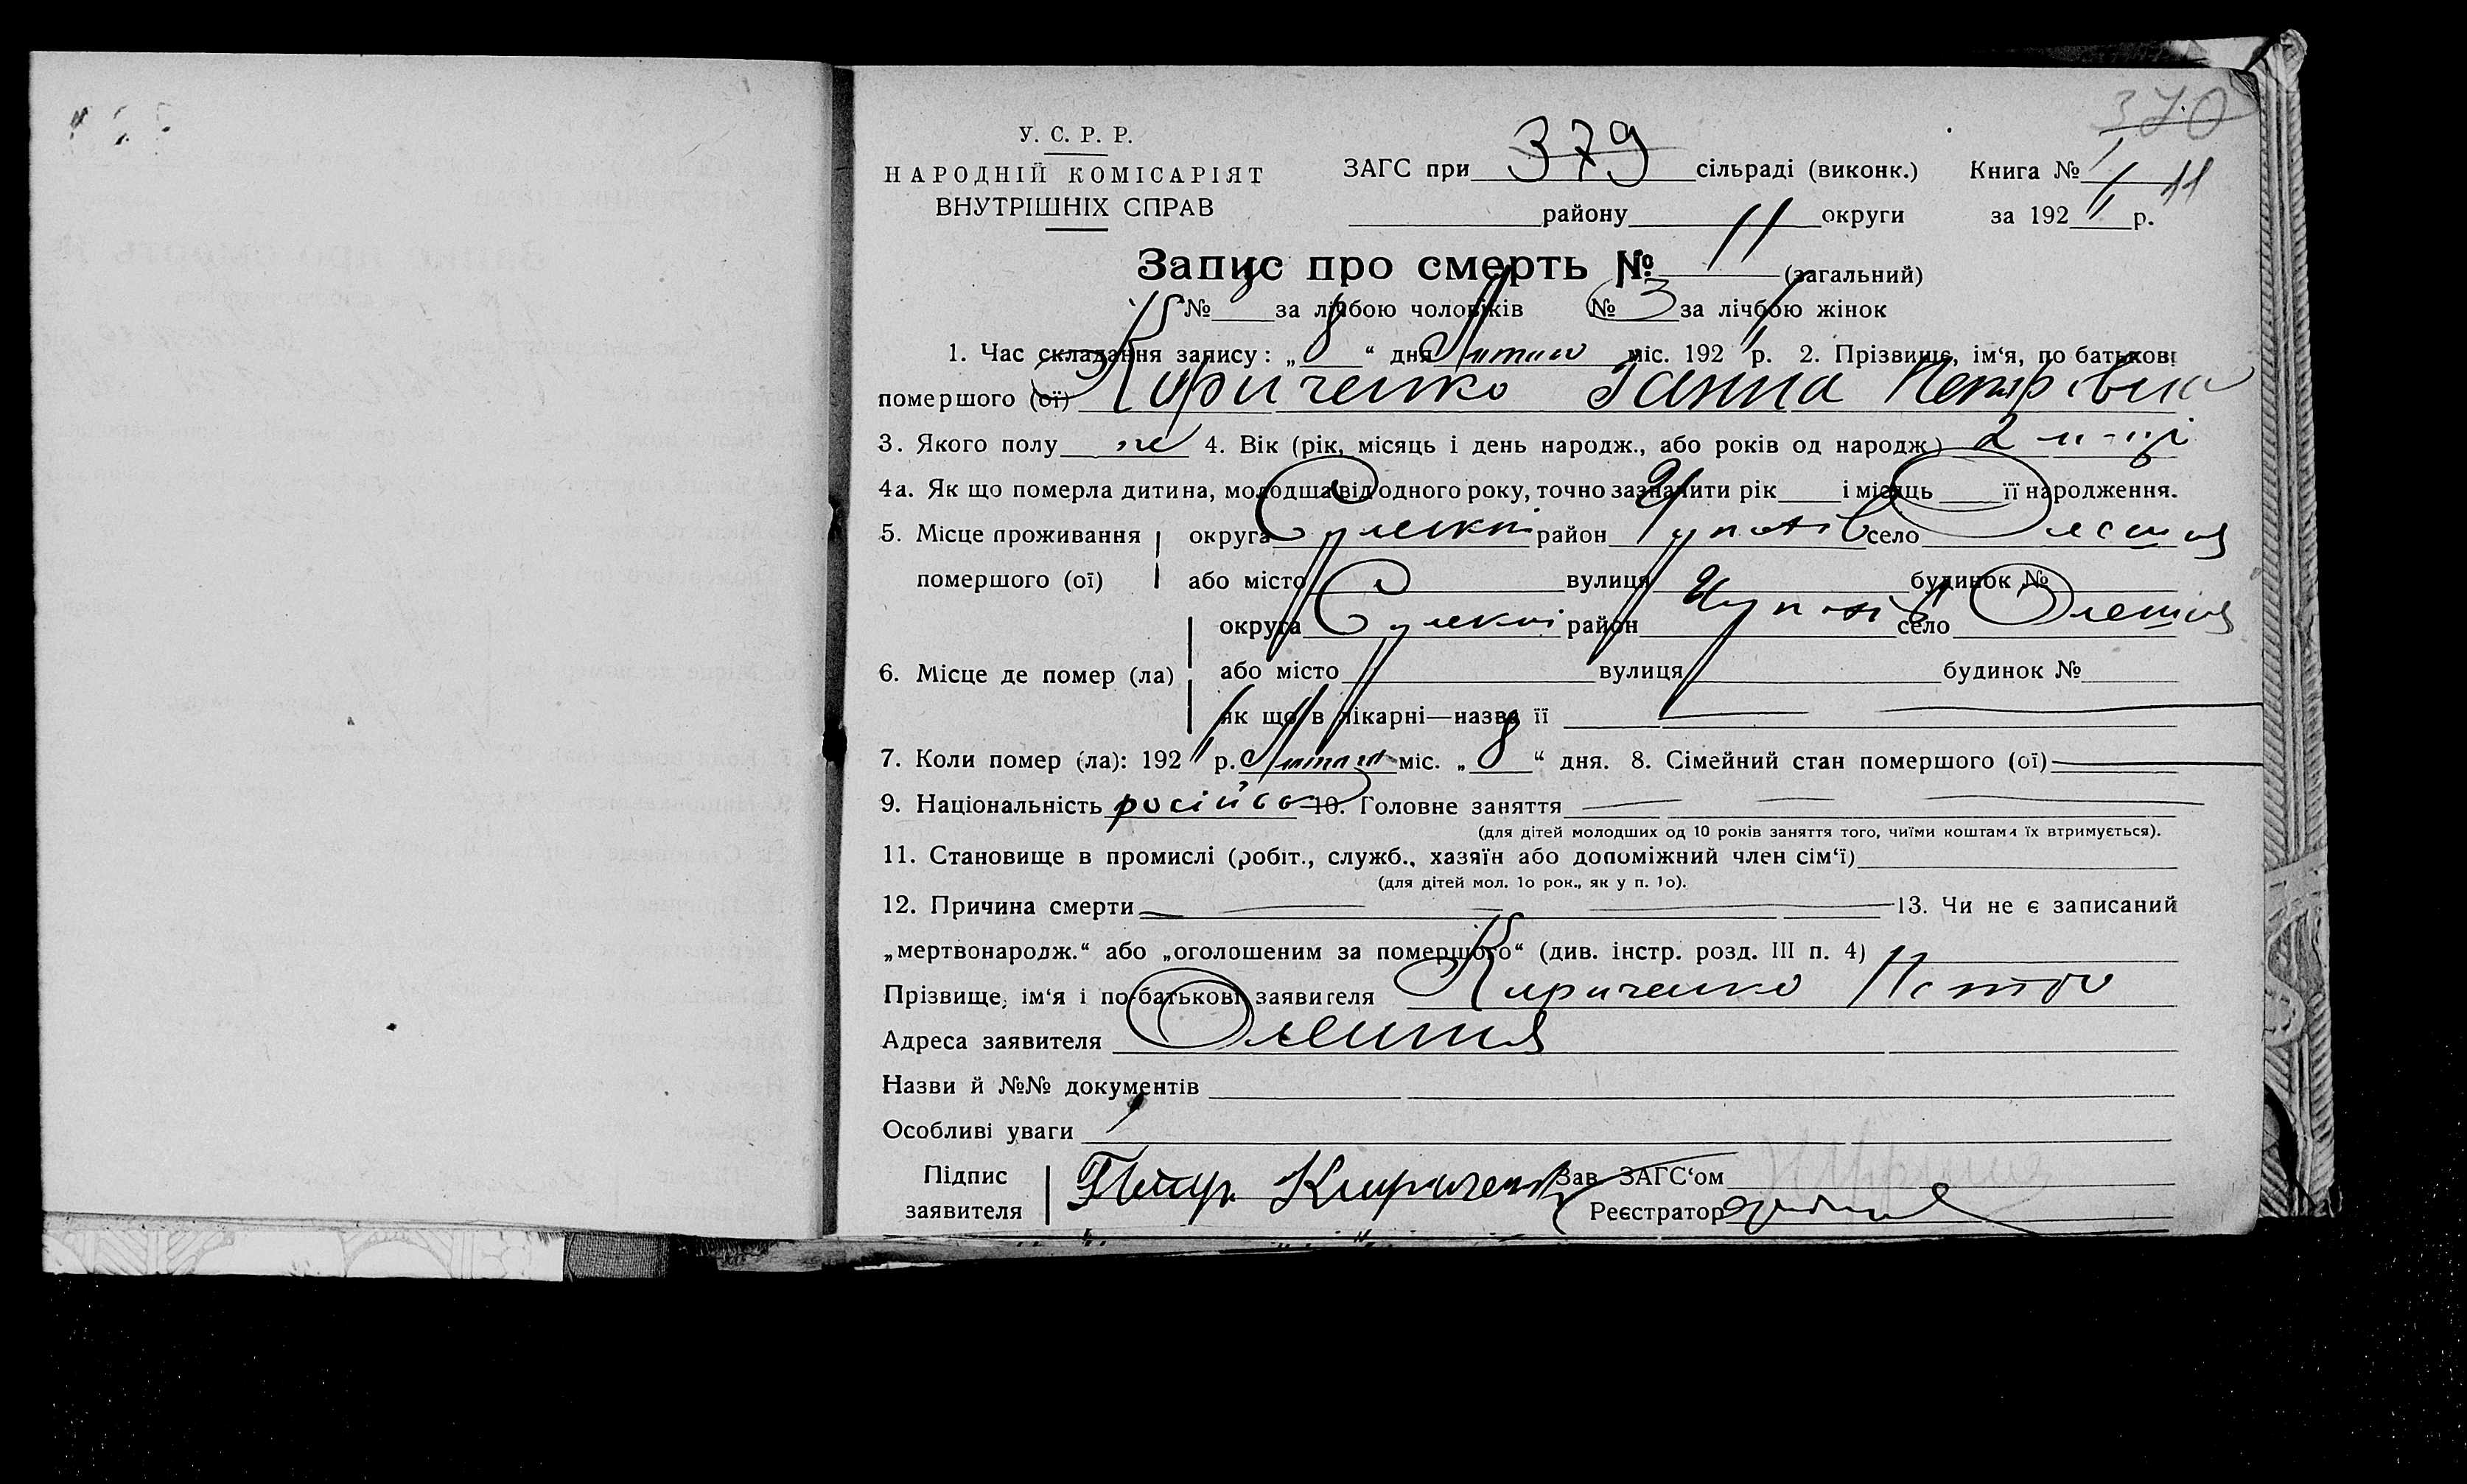 370
У. С. Р. Р.
НАРОДНІЙ КОМІСАРІЯТ
ВНУТРІШНІХ СПРАВ
ЗАГС при 379 сільраді (виконк.) Книга № 11
району 11 округи за 192 р.
Запис про смерть № (загальний)
№ за лічбою чоловіків № 3 за лічбою жінок
1. Час складання запису: „8“ дня міс. 192 р. 2. Прізвище, ім‘я, по батькові
помершого (ої) Кириченко Ганна Петрівна
3. Якого полу ж 4. Вік (рік, місяць і день народж., або років од народж.) 2
4а. Як що померла дитина, молодша від одного року, точно зазначити рік і місяць її народження.
5. Місце проживання округа Сумскій район село
помершого (ої) або місто вулиця будинок №
округа Сумскій район село Олешня
6. Місце де помер (ла) або місто вулиця будинок №
як що в лікарні—назва її
7. Коли помер (ла): 192 р. міс. „8“ дня. 8. Сімейний стан помершого (ої)
9. Національність російсь 10. Головне заняття
(для дітей молодших од 10 років заняття того, чиїми коштами їх втримується).
11. Становище в промислі (робіт., служб., хазяїн або допоміжний член сім‘ї)
(для дітей мол. 1о рок., як у п. 1о).
12. Причина смерти 13. Чи не є записаний
„мертвонародж.“ або „оголошеним за помершого“ (див. інстр. розд. III п. 4)
Прізвище, ім‘я і по батькові заявителя Кириченко Петро
Адреса заявителя Олешня
Назви й №№ документів
Особливі уваги
Підпис Петр Кириченко Зав. ЗАГС‘ом
заявителя Реєстратор